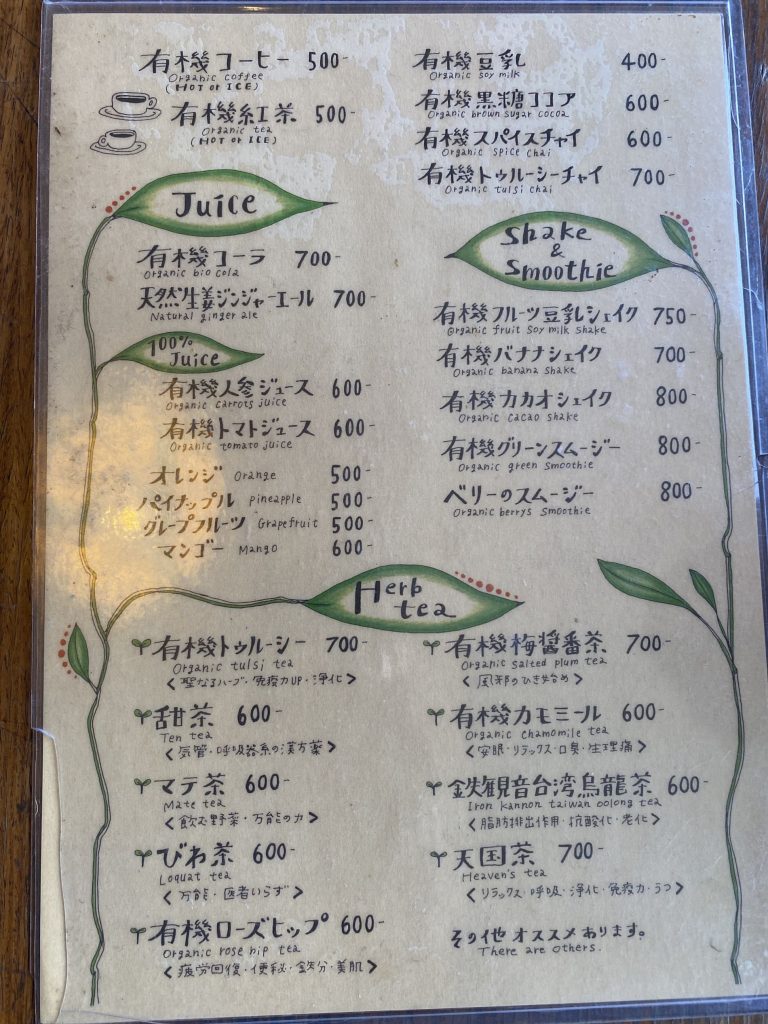 有機コーヒー 500-
Organic coffee
(HOT or ICE)
有機紅茶 500-
Organic tea
(HOT or ICE)
有機豆乳 400-
Organic soy milk
有機黒糖ココア 600-
Organic brown sugar cocoa
有機スパイスチャイ 600-
Organic spice chai
有機トゥルーシーチャイ 700-
Organic tulsi chai
Juice
有機コーラ 700-
Organic bio cola
天然生姜ジンジャーエール 700-
Natural ginger ale
100%
Juice
有機人参ジュース 600-
Organic carrots juice
有機トマトジュース 600-
Organic tomato juice
オレンジ Orange 500-
パイナップル pineapple 500-
グレープフルーツ Grapefruit 500-
マンゴー Mango 600-
Shake
&
Smoothie
有機フルーツ豆乳シェイク 750-
Organic fruit soy milk shake
有機バナナシェイク 700-
Organic banana shake
有機カカオシェイク 800-
Organic cacao shake
有機グリーンスムージー 800-
Organic green smoothie
ベリーのスムージー 800-
Organic berrys smoothie
Herb
tea
有機トゥルーシー 700-
Organic tulsi tea
<聖なるハーブ・免疫力UP・浄化>
甜茶 600-
Ten tea
<気管・呼吸器系の漢方薬>
マテ茶 600-
Mate tea
<飲む野菜・万能の力>
びわ茶 600-
Loquat tea
<万能・医者いらず>
有機ローズヒップ 600-
Organic rose hip tea
<疲労回復・便秘・鉄分・美肌>
有機梅醤番茶 700-
Organic salted plum tea
<風邪のひき始め>
有機カモミール 600-
Organic chamomile tea
<安眠・リラックス・口臭・生理痛>
鉄観音台湾烏龍茶 600-
Iron kannon taiwan oolong tea
<脂肪排出作用・抗酸化・老化>
天国茶 700-
Heaven's tea
<リラックス・呼吸・浄化・免疫力・うつ>
その他オススメあります。
There are others.